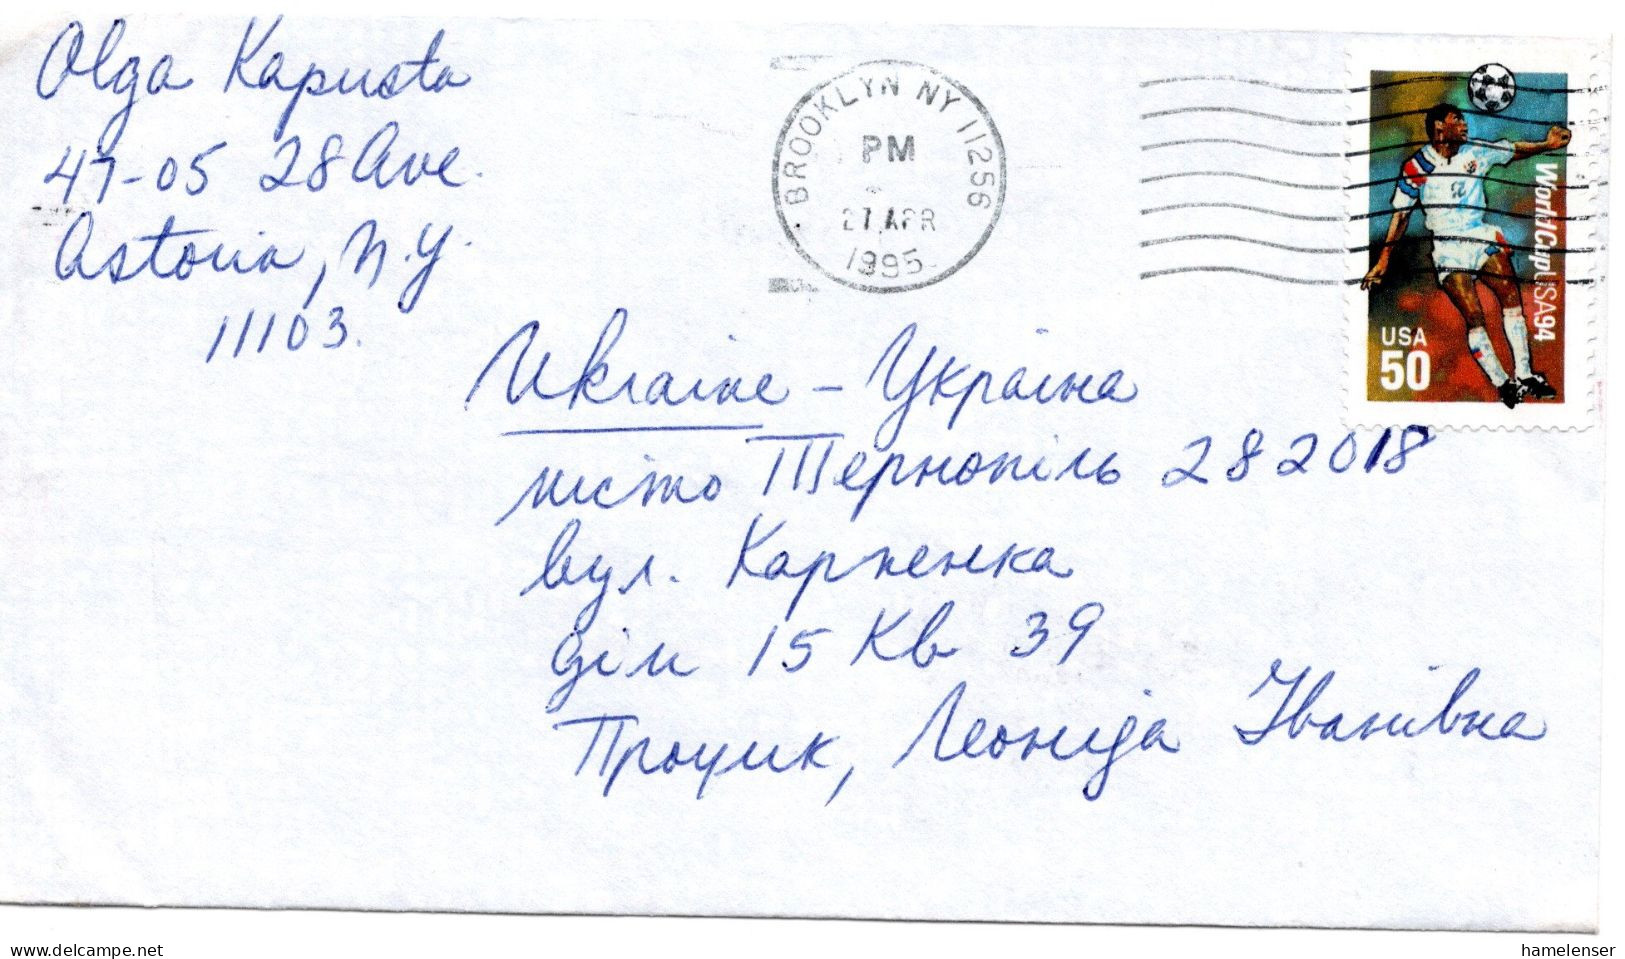 Olga Kapusta
47-05 28 Ave.
Astoria, N.Y.
11103.
BROOKLYN NY 11256
PM
27 APR
1995
WorldCupUSA94
USA
50
Ukraine - Україна
місто Тернопіль 282018
вул. Карпенка
дім 15 Кв 39
Процик, Леоніда Іванівна
www.delcampe.net
hamelenser